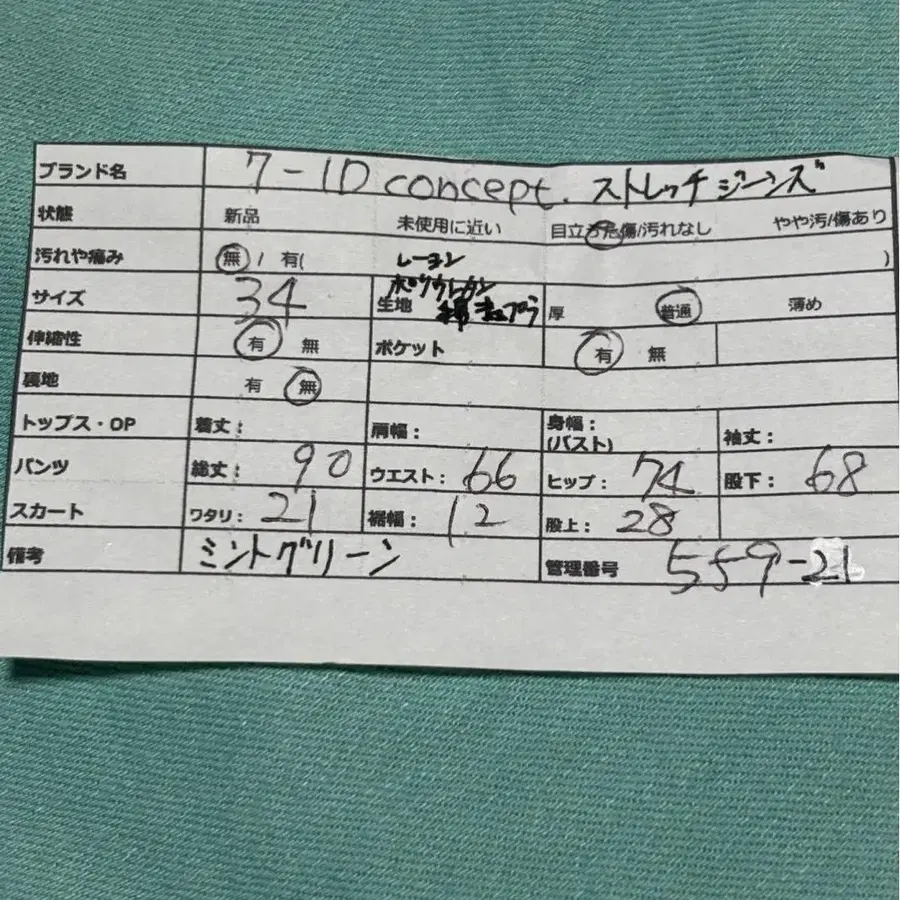 ブランド名 7-ID concept. ストレッチジーンズ
状態 新品 未使用に近い 目立った傷/汚れなし やや汚/傷あり
汚れや痛み 無 / 有( レーヨン )
サイズ 34 ポリウレタン
生地 綿 キュプラ 厚 普通 薄め
伸縮性 有 無 ポケット 有 無
裏地 有 無
トップス・OP 着丈: 肩幅: 身幅: (バスト) 袖丈:
パンツ 総丈: 90 ウエスト: 66 ヒップ: 74 股下: 68
スカート ワタリ: 21 裾幅: 12 股上: 28
備考 ミントグリーン 管理番号 559-21